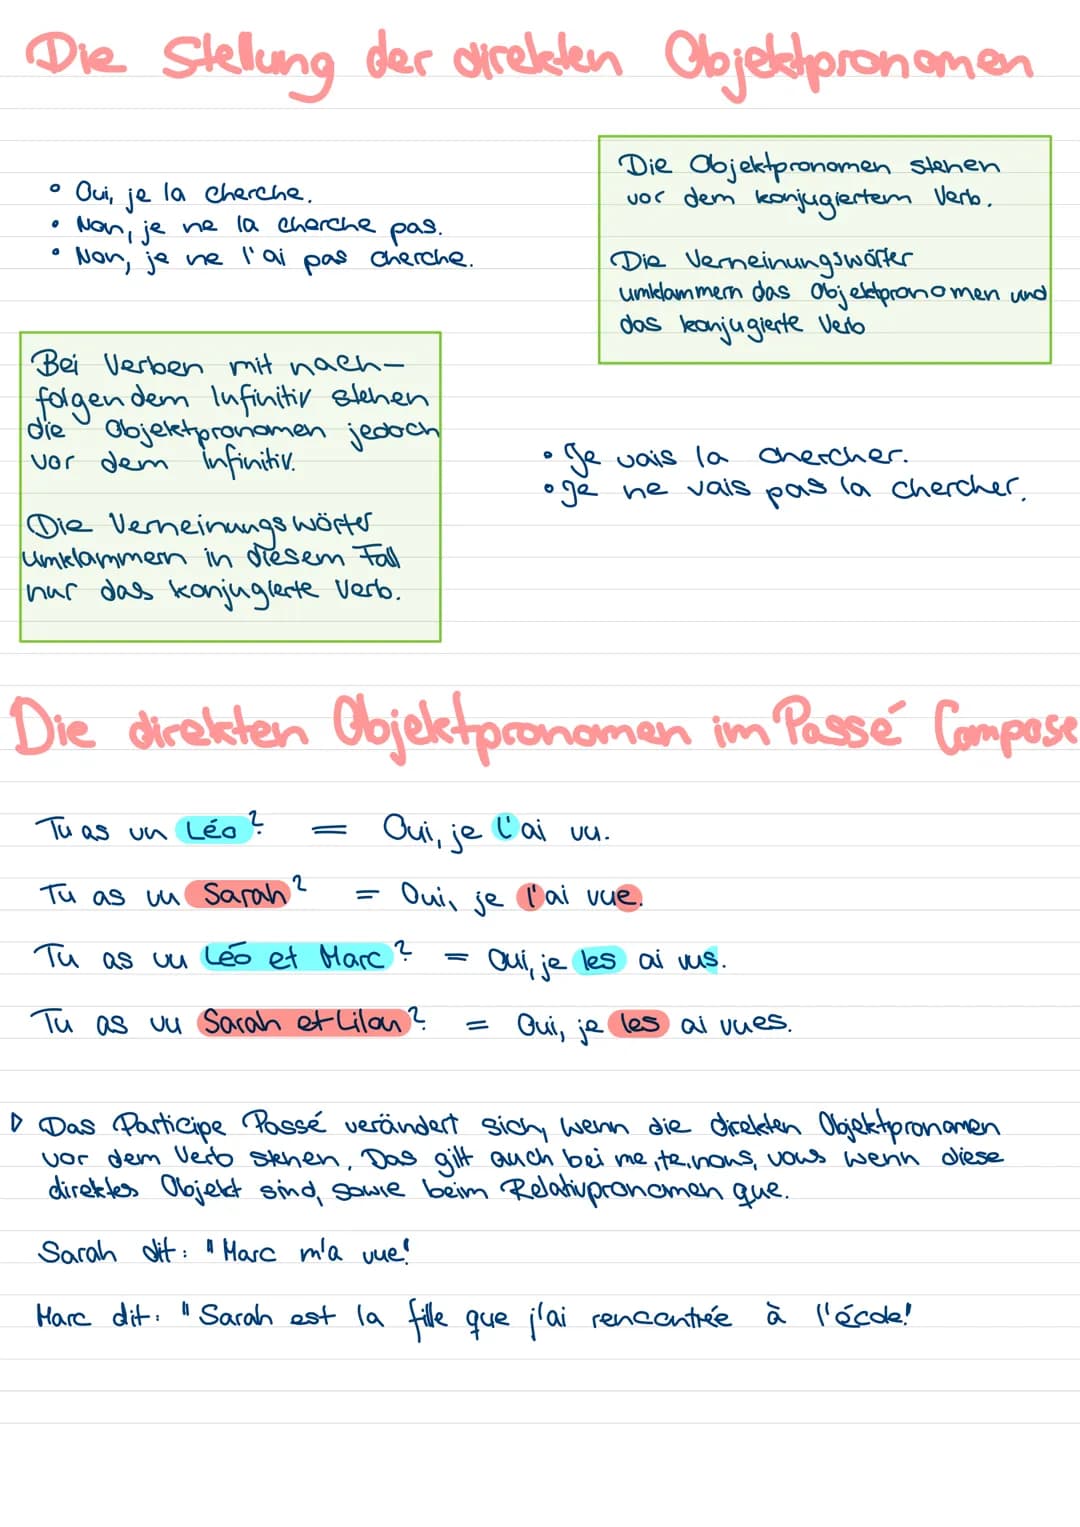 Die Stellung der direkten Objektpronomen
• Oui, je la cherche.
• Non, je ne la cherche pas.
• Non, je ne l'ai pas cherche.
Die Objektpronomen stehen
vor dem konjugiertem Verb.
Die Verneinungswörter
umklammern das Objektpronomen und
das konjugierte Verb
Bei Verben mit nach-
folgendem Infinitiv stehen
die Objektpronomen jedoch
vor dem infinitiv.
Die Verneinungswörter
umklammern in diesem Fall
nur das konjugierte Verb.
• Je vais la chercher.
• Je ne vais pas la chercher.
Die direkten Objektpronomen im Passé Compose
Tu as un Léo? = Oui, je l'ai vu.
Tu as vu Sarah? = Oui, je l'ai vue.
Tu as vu Léo et Marc? = Oui, je les ai vus.
Tu as vu Sarah et Lilou? = Oui, je les ai vues.
▷ Das Participe Passé verändert sich, wenn die direkten Objektpronomen
vor dem Verb stehen. Das gilt auch bei me, te, nous, vous wenn diese
direktes Objekt sind, sowie beim Relativpronomen que.
Sarah dit: "Marc m'a vue!
Marc dit: "Sarah est la fille que j'ai rencontrée à l'école!